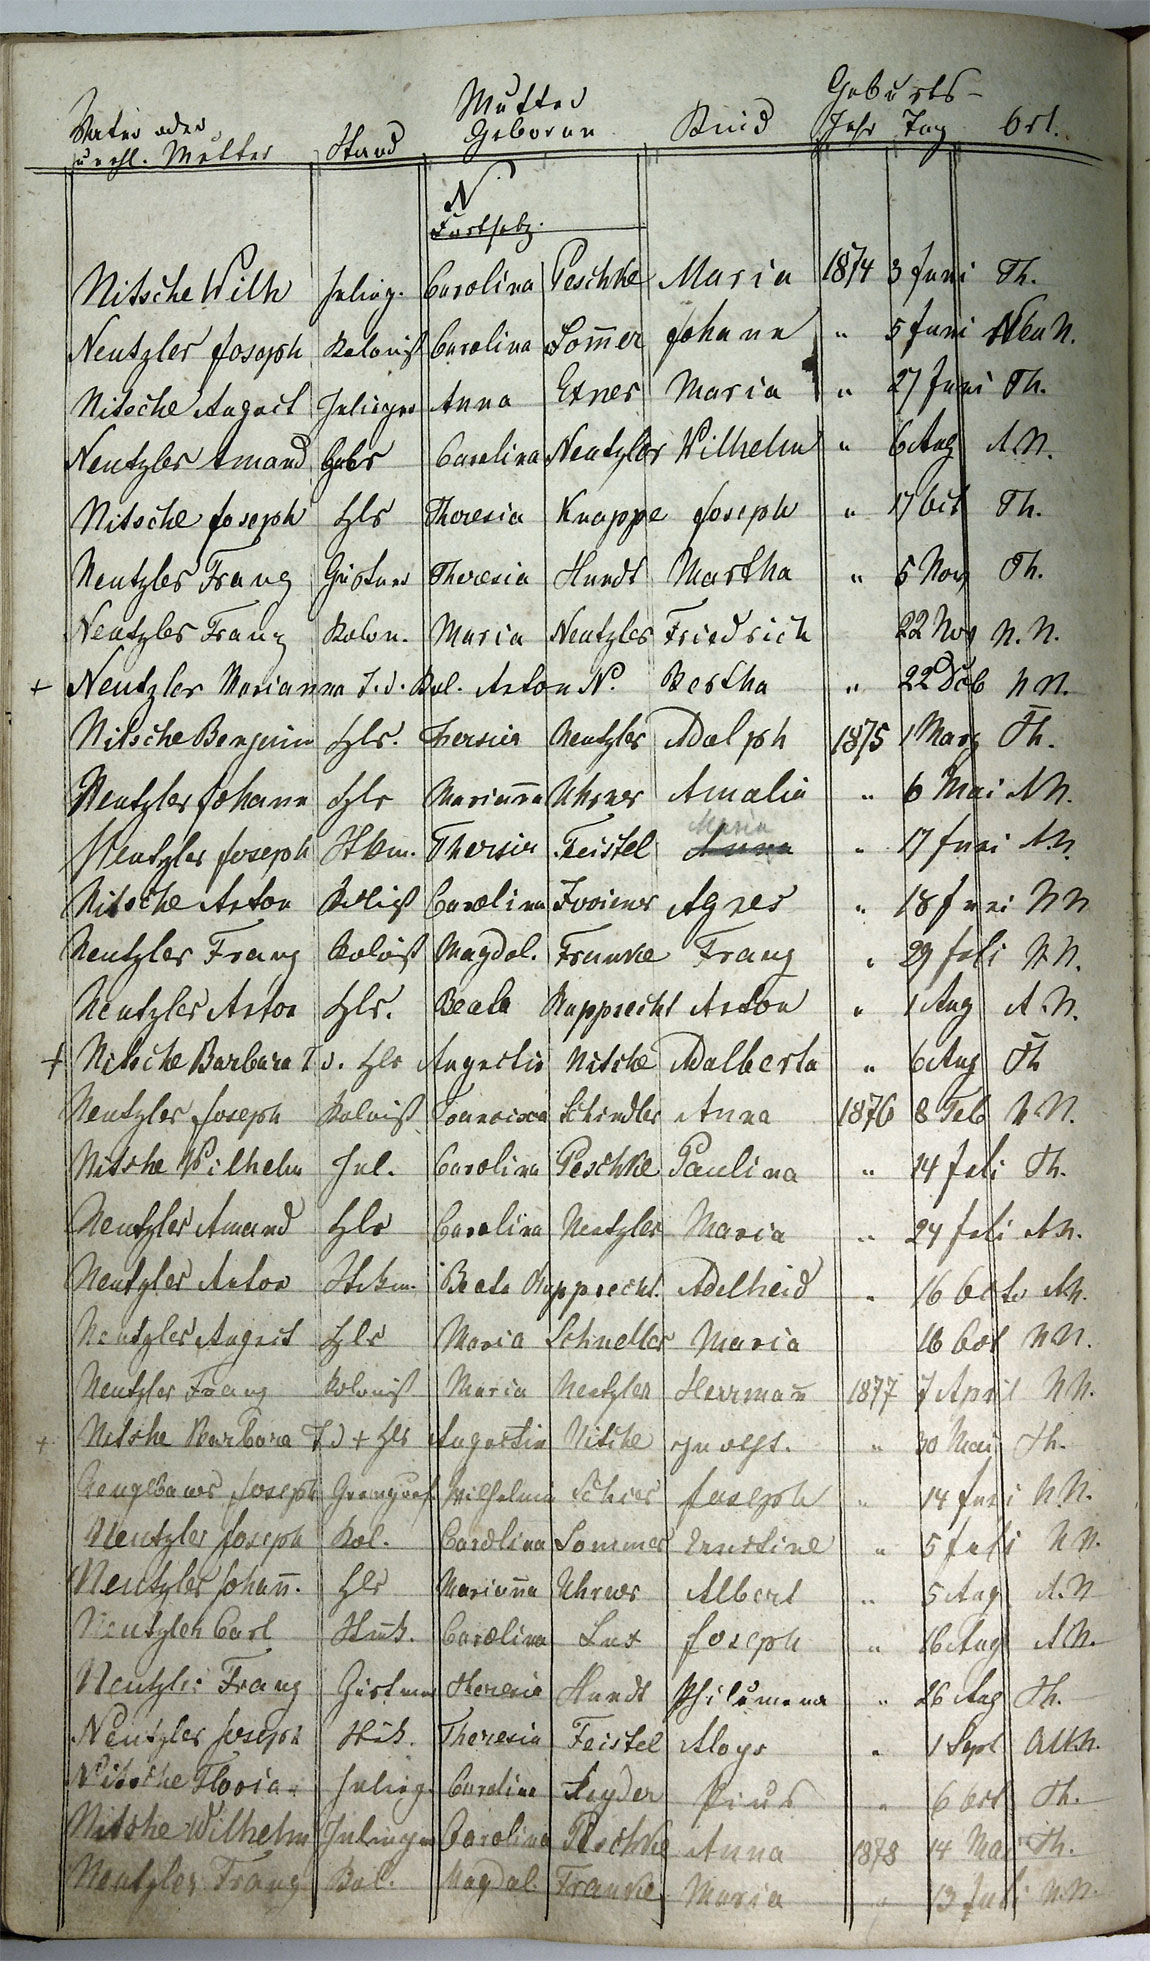 Geburts-
Mutter
Vater oder
unehl. Mutter Stand Geboren Kind Jahr Tag Ort.
N.
Fortsetz.
Nitsche Wilh Carolina Peschke Maria 1874 3 Juni Th.
Neutzler Joseph Kolonist Carolina Sommer Johann " 5 Juni Neu N.
Nitsche August Anna Exner Maria " 27 Juni Th.
Neutzler Amand Carolina Neutzler Wilhelm " 6 Aug A.N.
Nitsche Joseph Hlr Theresia Knappe Joseph " 17 Oct Th.
Neutzler Franz Gärtner Theresia Hundt Martha " 5 Nov Th.
Neutzler Franz Kolon. Maria Neutzler Friedrich 22 Nov N.N.
+ Neutzler Marianna T. d. Kol. Anton N. Bertha " 22 Dcb N N.
Nitsche Benjamin Hlr. Thersia Neutzler Adolph 1875 1 Marz Th.
Neutzler Johann Hlr Marian̄a Uhrner Amalia " 6 Mai A N.
Maria
Neutzler Joseph Thersia Feistel Anna " 17 Juni A.N.
Nitsche Anton Carolina Agnes " 18 Juni N N
Neutzler Franz Kolōist Magdal. Franke Franz " 29 Juli N.N.
Neutzler Anton Hlr. Beata Rupprecht Anton " 1 Aug A.N.
+ Nitsche Barbara T. d. Hlr Augustin Nitsche Adalberta " 6 Aug Th
Neutzler Joseph Kolonist Francisca Schindler Anna 1876 8 Feb N.N.
Nitshe Wilhelm Inl. Carolina Peschke Paulina " 14 Juli Th.
Neutzler Amand Hlr Carolina Neutzler Maria " 24 Juli A.N.
Neutzler Anton Beata Rupprecht. Adelheid " 16 Octo A N.
Neutzler August Hlr Maria Schneller Maria 16 Oct N N.
Neutzler Franz Kolonist Maria Neutzler Herrman̄ 1877 7 April N N.
+ Nitshe Barbara T. d + Hlr Augustin Nitsche " 30 Mai Th.
Joseph Wilhelmine Joseph " 14 Juni N.N.
Neutzler Joseph Kol. Carolina Sommer Ernstine " 5 Juli N N.
Neutzler Johan̄. Hlr Marian̄a Uhrner Albert " 5 Aug A.N
Neutzler Carl Carolina Lux Joseph " 16 Aug A N.
Neutzler Franz Gärtner Theresia Hundt Philumena " 26 Aug Th.
Neutzler Joseph Theresia Feistel Aloys " 1 Sept Alt N.
Nitsche Carolina Pius " 6 Oct Th.
Nitshe Wilhelm Carolina Peschke Anna 1878 14 Mai Th.
Neutzler Franz Kol. Magdal. Franke Maria " 13 Juli N.N.